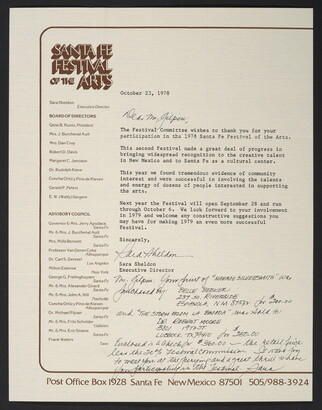 SANTA FE
FESTIVAL
OF THE
ARTS
Sara Sheldon
Executive Director
BOARD OF DIRECTORS
Gene B. Kuntz, President
Mrs. J. Burchenal Ault
Mrs. Dan Croy
Robert G. Davis
Margaret C. Jamison
Dr. Rudolph Kieve
Concha Ortiz y Pino de Kleven
Gerald P. Peters
ADVISORY COUNCIL
Santa Fe
Mr. & Mrs. J. Burchenal Ault
Santa Fe
Mrs. Philip Bennett
Professor Van Deren Coke
Albuquerque
Dr. Carl S. Dentzel
Los Angeles
Milton Esterow
New York
Mr. & Mrs. Alexander Girard
Santa Fe
Mr. & Mrs. John A. Hill
Santa Fe
Concha Ortiz y Pino de Kleven
Santa Fe
Santa Fe
Mr. & Mrs. Fritz Scholder
Mr. & Mrs. Eric Sloane
Santa Fe
Frank Waters
Taos
October 23, 1978
Dear Mr. Gilpin,
The Festival Committee wishes to thank you for your
participation in the 1978 Santa Fe Festival of the Arts.
This second Festival made a great deal of progress in
bringing widespread recognition to the creative talent
in New Mexico and to Santa Fe as a cultural center.
This year we found tremendous evidence of community
interest and were very successful in involving the talents
and energy of dozens of people interested in supporting
the arts.
Next year the Festival will open September 28 and run
through October 6. We look forward to your involvement
in 1979 and welcome any constructive suggestions you
may have for making 1979 an even more successful
Festival.
Sincerely,
Sara Sheldon
Sara Sheldon
Executive Director
Your print of "NAVAHO SILVERSMITH" was
purchased by
235 N. RIVERSIDE
ESPANOLA, N.M. 87532 for
and "THE STORM FROM LA BAJADA" was sold to:
DR. ROBERT MOORE
LUBBOCK, TX for
Enclosed is a check for $360.00 — the retail price
less the 20% Festival commission.
to meet you at the opening and a great thrill to have
your participation in the Festival Sara
Post Office Box 1928 Santa Fe New Mexico 87501 505/988-3924